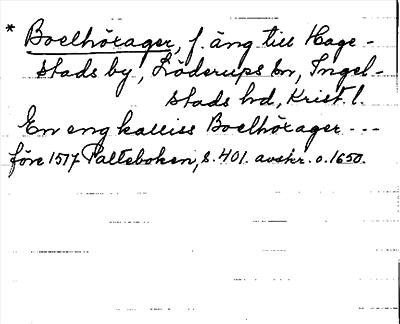 * Boelhöxager, f. äng till Hage-
stads by, Löderups sn, Ingel-
stads hd, Krist. l.
En eng kalliss Boelhöxager - - -
före 1517 Palteboken, s. 401. avskr. o. 1650.